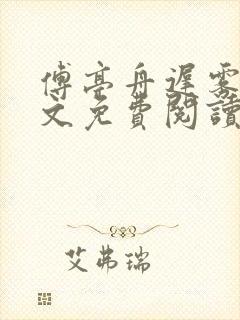 傅亭舟遲雾
文免費閱讀
艾弗瑞